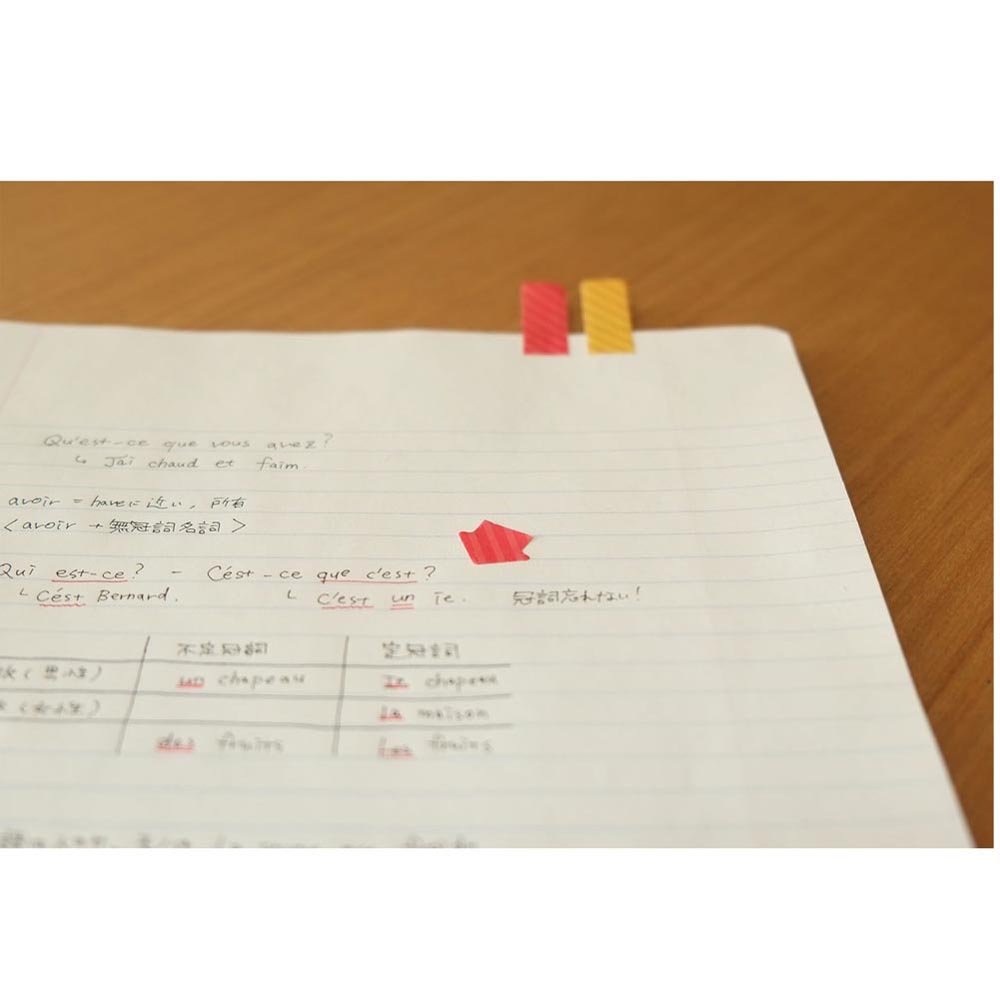 Qu'est-ce que vous avez?
↳ J'ai chaud et faim.
avoir = haveに近い, 所有
<avoir + 無冠詞名詞>
Qui est-ce? - C'est-ce que c'est?
└ C'est Bernard. └ C'est un ie. 冠詞忘れない!
不定冠詞 定冠詞
un chapeau le chapeau
la maison
des les